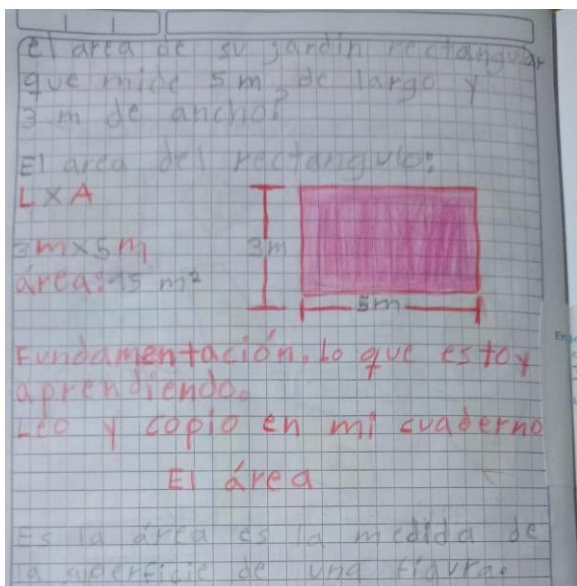 el area de su jardin rectangular
que mide 5 m de largo y
3 m de ancho?
El area del rectangulo:
L x A
3m x 5m
área: 15 m²
3m
5m
Fundamentación. Lo que estoy
aprendiendo.
Leo y copio en mi cuaderno
El área
Es la área es la medida de
la superficie de una figura.